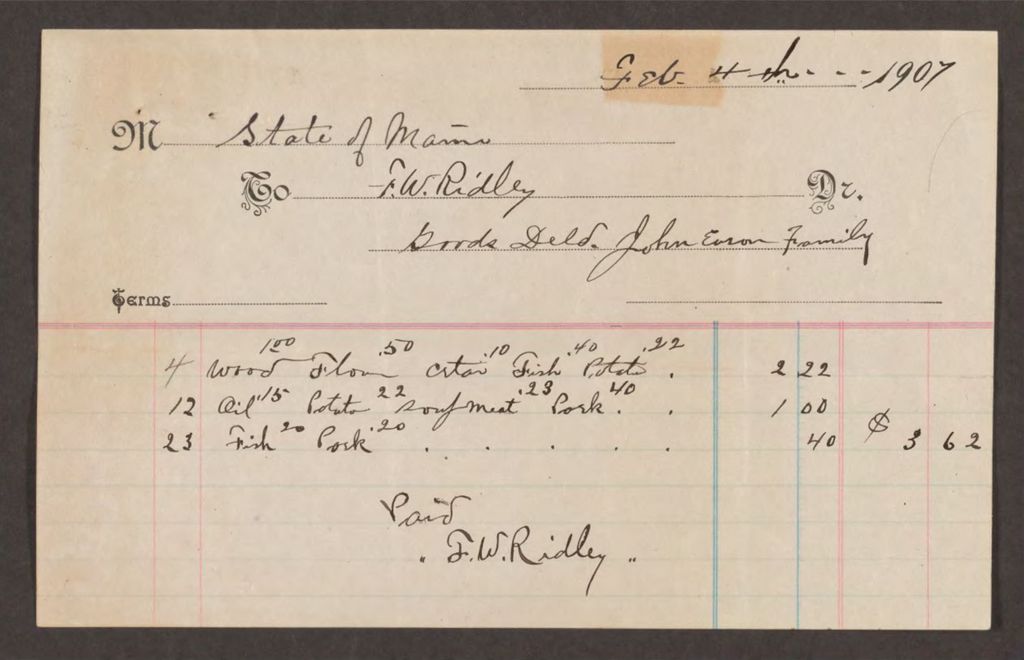 Feb. 4th - - - 1907
M State of Maine
To F.W. Ridley Dr.
Goods Deld. John Eason Family
Terms
4 Wood 1.00 Flour .50 Cstar .10 Fish .40 Potato .22 . 2 22
12 Oil .15 Potato 22 Soupmeat .23 Pork .40 . . 1 00
23 Fish 20 Pork .20 . . . . . 40 $ 3 62
Paid
" F.W. Ridley "